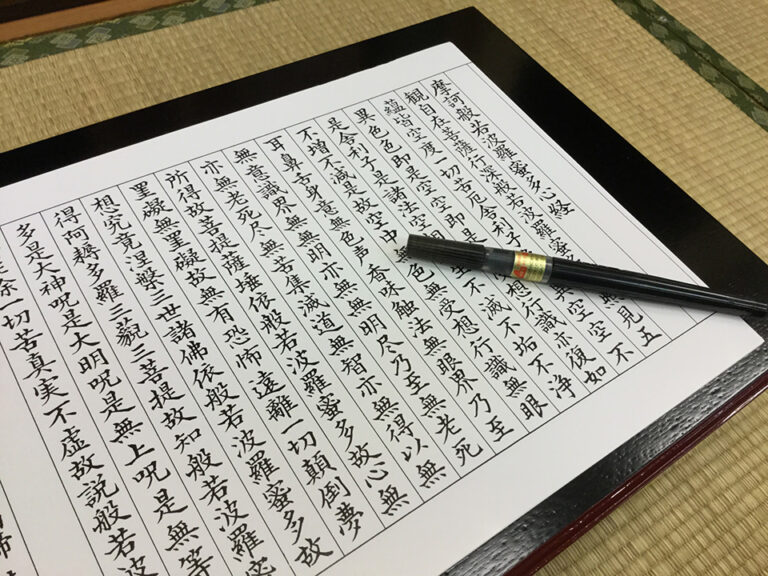 摩訶般若波羅蜜多心経
観自在菩薩行深般若波羅蜜見五
蘊皆空度一切苦厄舎利子異空空不
異色色即是空空即是想行識亦復如
是舎利子是諸法空不滅不垢不浄
不増不減是故空中色無受想行識無眼
耳鼻舌身意無色声香味触法無眼界乃至
無意識界無無明亦無無明尽乃至無老死
亦無老死尽無苦集滅道無智亦無得以無
所得故菩提薩埵依般若波羅蜜多故心無
罣礙無罣礙故無有恐怖遠離一切顛倒夢
想究竟涅槃三世諸佛依般若波羅蜜多故
得阿耨多羅三藐三菩提故知般若波羅
多是大神呪是大明呪是無上呪是無等
除一切苦真実不虚故説般若波